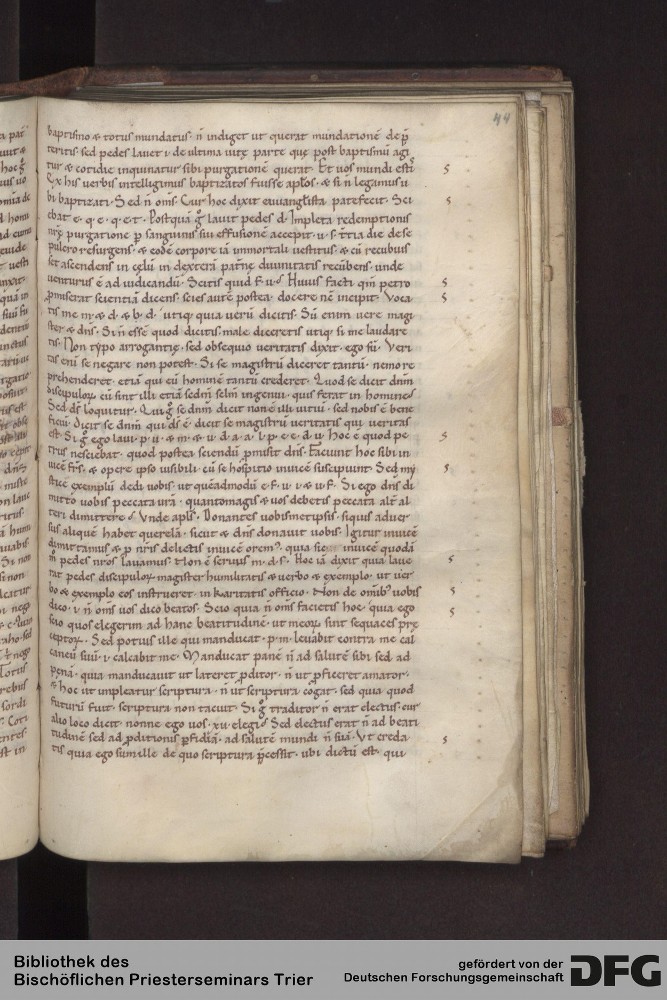 44
baptismo & totus mundatus· n̄ indiget ut querat mundationē de p̄
teritis· sed pedes lauet ·i· de ultima uitę parte quę post baptismū agi
tur & cotidie inquinatur sibi purgationē querat· Et uos mundi estis
Ex his uerbis intelligimus baptizatos fuisse aplōs· & si n̄ legamus u
bi baptizati· Sed n̄ om̄s· Cur hoc dixit euuangl̄ista patefecit· Sci
ebat e· q· e· q· e· t· Postquā g̊ lauit pedes d· Impleta redemptionis
nr̄ę purgatione p sanguinis sui effusionē accepit ·u· s· t̄tia die de se
pulcro resurgens· & eodē corpore iā immortali uestitus· & cū recubuis
set ascendens in cęlū in dexterā patr̄nę diuinitatis recūbens· unde
uenturus ē ad iudicandū· Scitis quid f· u· Huius facti qm̄ petro
pmiserat scientiā dicens· scies autē postea· docere nē incipit· Voca
tis me m· & d· & b· d· utiq· quia uerū dicitis· Sū enim uere magi
ster & dn̄s· Si n̄ essē quod dicitis· male diceretis utiq· si me laudare
tis· Non typo arrogantię· sed obsequio ueritatis dixit· ego sū· Veri
tas enī se negare non potest· Si se magistrū diceret tantū· nemo re
prehenderet· etiā qui eū hominē tantū crederet· Quod se dicit dnm̄
discipulorꝝ cū sint illi etiā sedm̄ sclm̄ ingenui· quis ferat in homine
Sed ds̄ loquitur· Qui g̊ se dnm̄ dicit non ē illi uitiū· sed nobis ē bene
ficiū· Dicit se dnm̄ qui ds̄ ē· dicit se magistrū ueritatis qui ueritas
est· Si g̊ ego laui· p· u· & m· & u· d· a· a· l· p· e· e· d· u· Hoc ē quod pe
trus nesciebat· quod postea sciendū pmisit dns̄· Faciunt hoc sibi in
uicē frs̄· & opere ipso uisibili· cū se hospitio inuicē suscipiunt· Sed my
sticē exemplū dedi uobis· ut quēadmodū e· f· u· i· & u· f· Si ego dns̄ di
mitto uobis peccata ur̄a· quantomagis & uos debetis peccata altē al
teri dimittere· Vnde apls̄· Donantes uobismetipsis· siquis aduer
sus aliquē habet querelā· sicut & dns̄ donauit uobis· Igitur inuicē
dimittamus & p nr̄is delictis inuicē orem̄ꝰ· quia sic inuicē quodā
m̊ pedes nr̄os lauamus· Non ē seruus m· d· s· Hoc iā dixit quia laue
rat pedes discipulorꝝ magister humilitatis & uerbo & exemplo· ut uer
bo & exemplo eos instrueret· in karitatis officio· Non de omībꝰ uobis
dico· ·i· n̄ om̄s uos dico beatos· Scio quia n̄ om̄s facietis hoc· quia ego
scio quos elegerim ad hanc beatitudinē· ut meorꝝ sint sequaces prę
ceptorꝝ· Sed potius ille qui manducat· p· m· leuabit contra me cal
caneū suū· ·i· calcabit me· Manducat panē n̄ ad salutē sibi sed ad
pęna· quia manducauit ut lateret pditor· n̄ ut pficeret amator·
& hoc ut impleatur scriptura· n̄ ut scriptura cogat· sed quia quod
futurū fuit· scriptura non tacuit· Si g̊ traditor n̄ erat electus· cur
alio loco dicit· nonne ego uos· xii· elegi· Sed electus erat n̄ ad beati
tudinē sed ad pditionis pfidiā· ad salutē mundi n̄ suā· Vt creda
tis quia ego sum· ille de quo scriptura p̄cessit· ubi dictū est· qui
Bibliothek des
Bischöflichen Priesterseminars Trier
gefördert von der
Deutschen Forschungsgemeinschaft
DFG